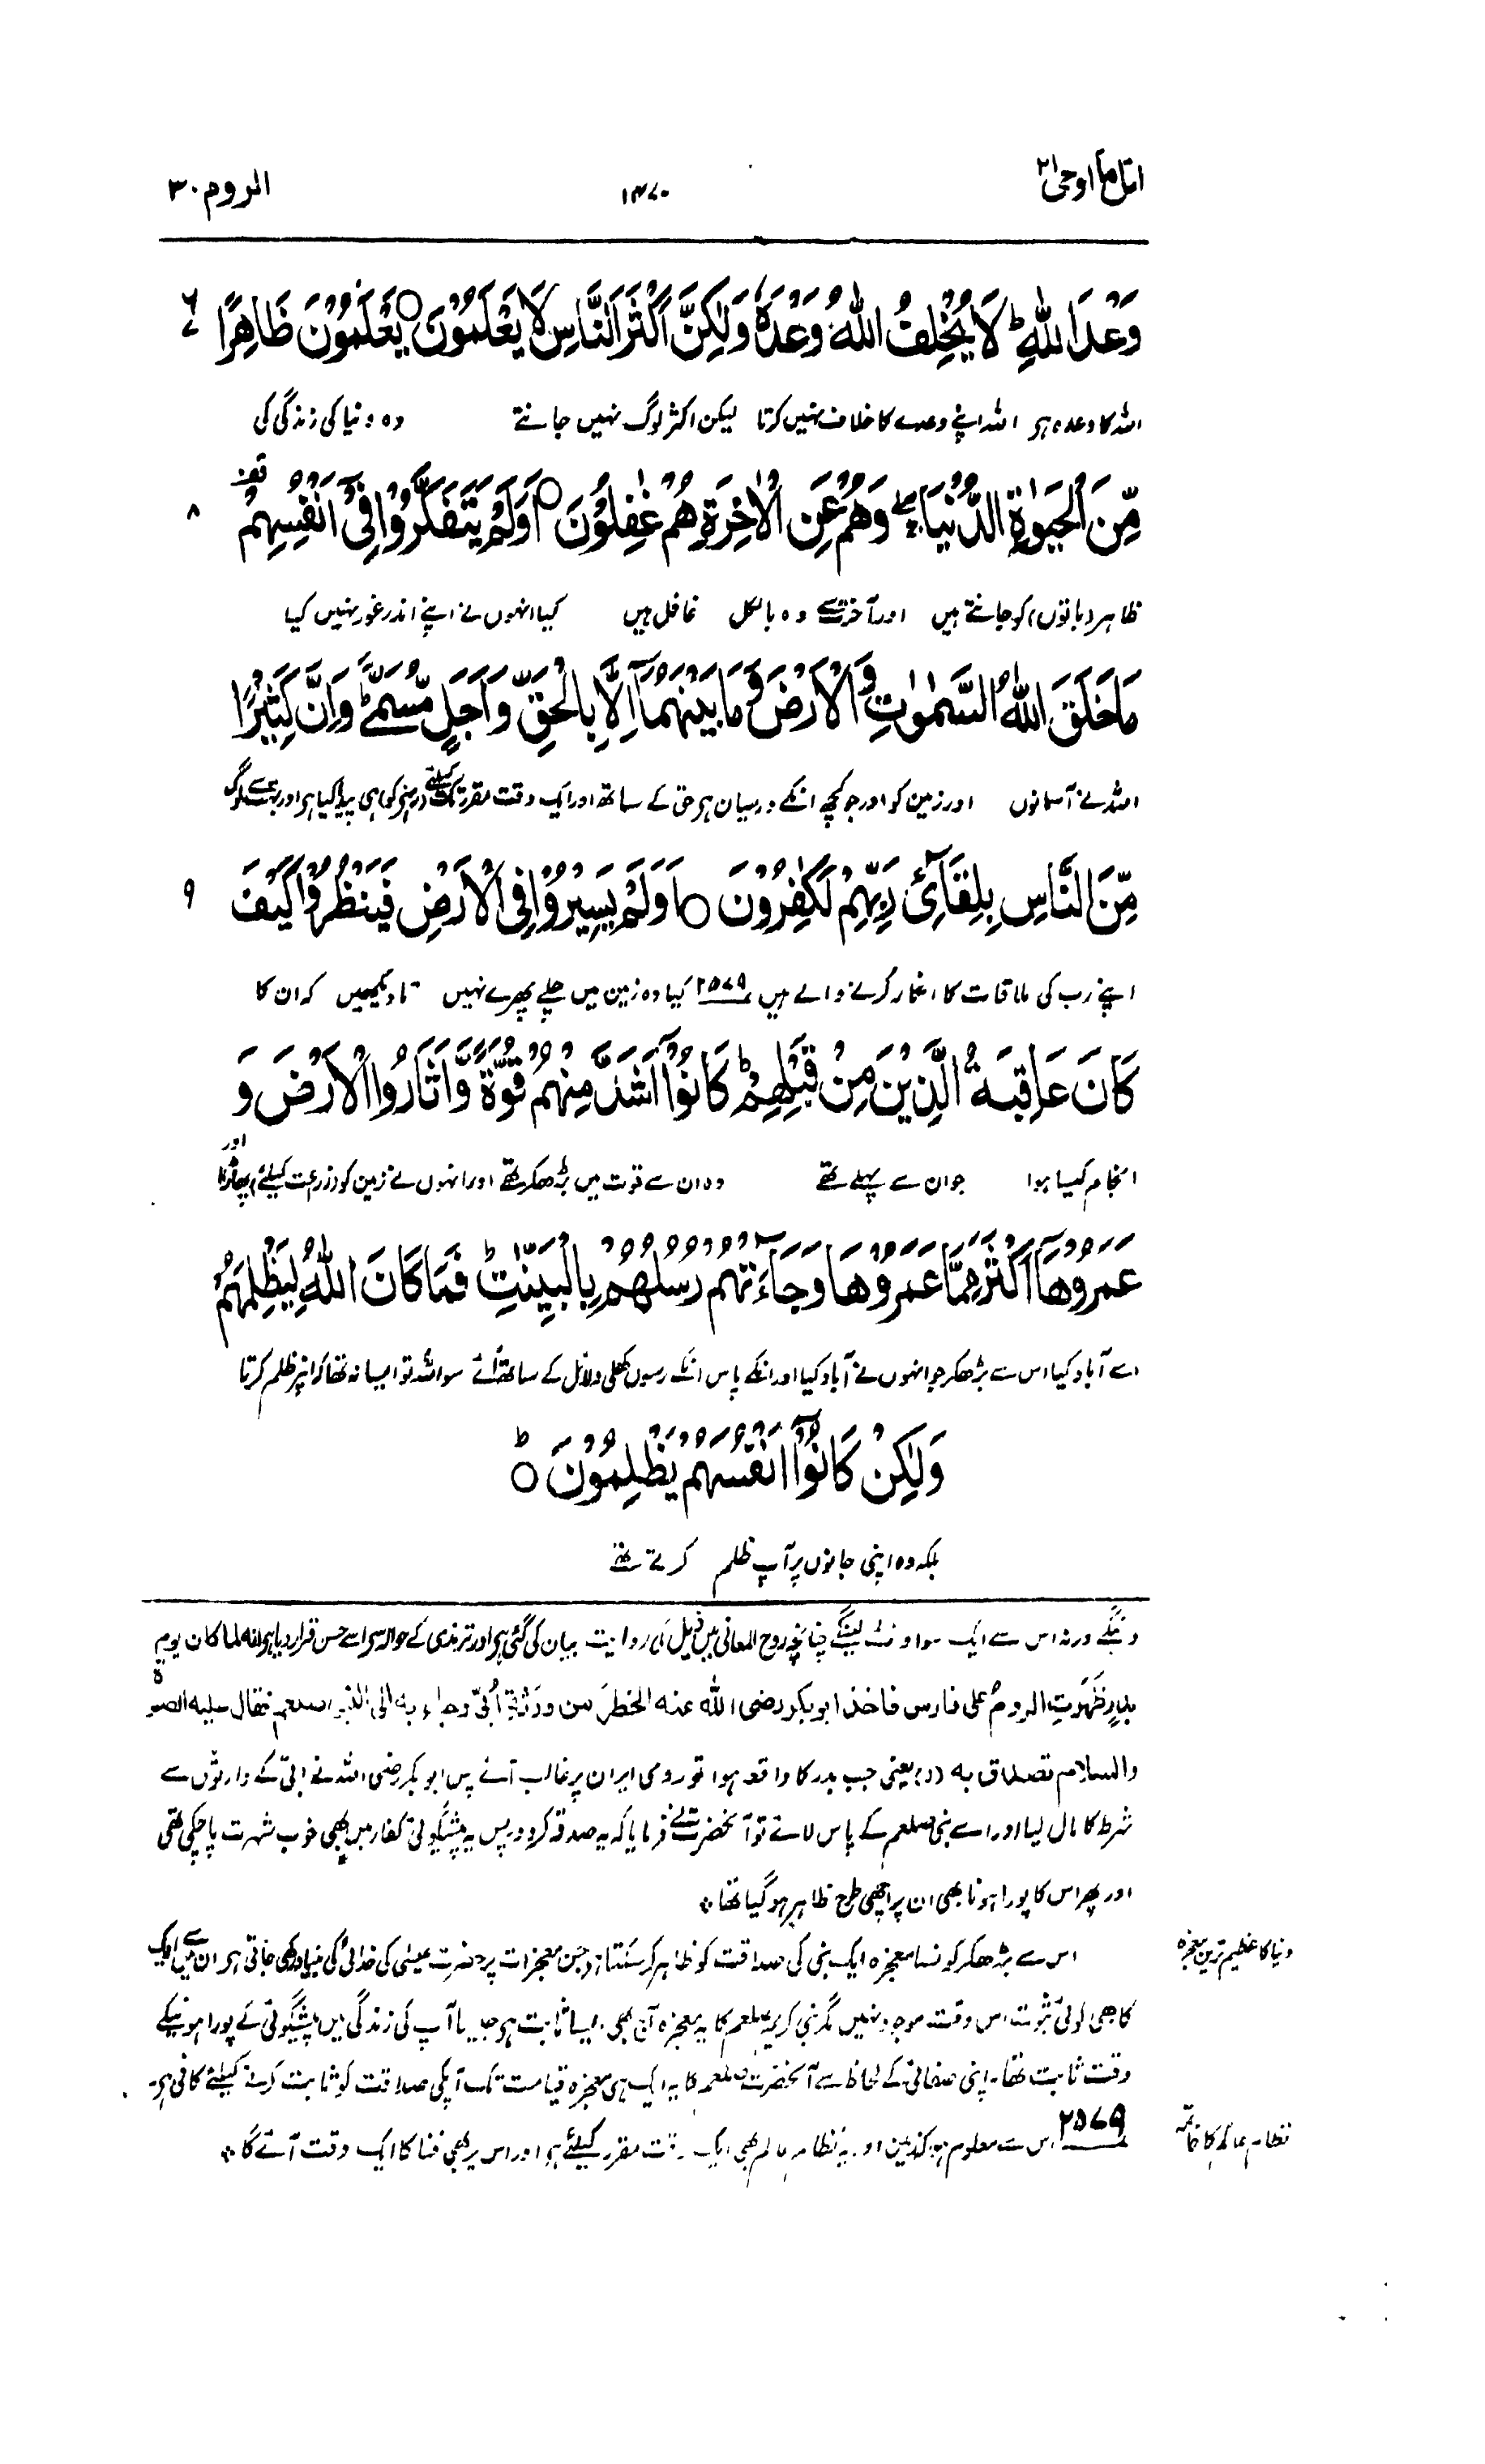 اتل ما اوحی ۲۱
۱۴۷۰
الروم ۳۰
وَعْدَ اللّٰهِ ؕ لَا یُخْلِفُ اللّٰهُ وَعْدَهٗ وَلٰكِنَّ اَكْثَرَ النَّاسِ لَا یَعْلَمُوْنَ ○ یَعْلَمُوْنَ ظَاهِرًا
۶
۷
اللہ کا وعدہ ہر اللہ اپنے وعدے کا خلاف نہیں کرتا لیکن اکثر لوگ نہیں جانتے وہ دنیا کی زندگی کی
مِّنَ الْحَیٰوةِ الدُّنْیَا ۖۚ وَهُمْ عَنِ الْاٰخِرَةِ هُمْ غٰفِلُوْنَ ○ اَوَلَمْ یَتَفَكَّرُوْا فِیْۤ اَنْفُسِهِمْ
۸
ظاہر (باتوں) کو جانتے ہیں اور آخرت سے وہ بالکل غافل ہیں کیا انہوں نے اپنے اندر غور نہیں کیا
مَا خَلَقَ اللّٰهُ السَّمٰوٰتِ وَالْاَرْضَ وَمَا بَیْنَهُمَاۤ اِلَّا بِالْحَقِّ وَاَجَلٍ مُّسَمًّی ؕ وَاِنَّ كَثِیْرًا
اللہ نے آسمانوں اور زمین کو اور جو کچھ انکے درمیان ہر حق کے ساتھ اور ایک وقت مقرر تک کیلئے ہی پیدا کیا ہر اور بہت سے لوگ
مِّنَ النَّاسِ بِلِقَآئِ رَبِّهِمْ لَكٰفِرُوْنَ ○ اَوَلَمْ یَسِیْرُوْا فِی الْاَرْضِ فَیَنْظُرُوْا كَیْفَ
۹
اپنے رب کی ملاقات کا انکار کرنے والے ہیں ۲۵۷۹ کیا وہ زمین میں چلے پھرے نہیں تا دیکھیں کہ ان کا
كَانَ عَاقِبَةُ الَّذِیْنَ مِنْ قَبْلِهِمْ ؕ كَانُوْۤا اَشَدَّ مِنْهُمْ قُوَّةً وَّاَثَارُوا الْاَرْضَ وَ
انجام کیسا ہوا جو ان سے پہلے تھے وہ ان سے قوت میں بڑھکر تھے اور انہوں نے زمین کو (زراعت کیلئے) پھاڑا اور
عَمَرُوْهَاۤ اَكْثَرَ مِمَّا عَمَرُوْهَا وَجَآءَتْهُمْ رُسُلُهُمْ بِالْبَیِّنٰتِ ؕ فَمَا كَانَ اللّٰهُ لِیَظْلِمَهُمْ
اسے آباد کیا اس سے بڑھکر جو انہوں نے آباد کیا اور انکے پاس انکے رسول کھلی دلائل کے ساتھ آئے سو اللہ تو ایسا نہ تھا کہ انپر ظلم کرتا
وَلٰكِنْ كَانُوْۤا اَنْفُسَهُمْ یَظْلِمُوْنَ ○ؕ
بلکہ وہ اپنی جانوں پر آپ ظلم کرتے تھے
دینگے ورنہ اس سے ایک سو اونٹ لینگے چنانچہ روح المعانی میں ذیل کی روایت بیان کی گئی ہر اور ترمذی کے حوالہ سے اسے حسن قرار دیا ہر انہ لما کان یوم
بدرٍ ظَهَرَتِ الرومُ علی فارس فاخذ ابوبکر رضی اللہ عنہ الخطرَ من ورثۃ اُبیّ وجاء بہ الی النبی صلعم فقال علیہ الصلوۃ
والسلام تصدق بہ (د) یعنی جب بدر کا واقعہ ہوا تو رومی ایران پر غالب آئے پس ابوبکر رضی اللہ نے ابیّ کے وارثوں سے
شرط کا مال لیا اور اسے نبی صلعم کے پاس لائے تو آنحضرت نے فرمایا کہ یہ صدقہ کردو پس یہ پیشگوئی کفار میں بھی خوب شہرت پاچکی تھی
اور پھر اس کا پورا ہونا بھی ان پر اچھی طرح ظاہر ہو گیا تھا ❖
دنیا کا عظیم ترین معجزہ
اس سے بڑھکر کونسا معجزہ ایک نبی کی صداقت کو ظاہر کر سکتا ہے جن معجزات پر حضرت عیسٰی کی خدائی کی بنیاد رکھی جاتی ہر ان میں سے ایک
کا بھی کوئی ثبوت اس وقت موجود نہیں مگر نبی کریم صلعم کا یہ معجزہ آج بھی ایسا ثابت ہر جیسا آپ کی زندگی میں پیشگوئی کے پورا ہونیکے
وقت ثابت تھا۔ اپنی صفائی کے لحاظ سے آنحضرت صلعم کا یہ ایک ہی معجزہ قیامت تک آپکی صداقت کو ثابت کرنے کیلئے کافی ہر۔
نظام عالم کا خاتمہ
۲۵۷۹ اس سے معلوم ہوا کہ زمین اور یہ نظام عالم بھی ایک وقت مقرر کیلئے ہر اور اس پر بھی فنا کا ایک وقت آئے گا ❖